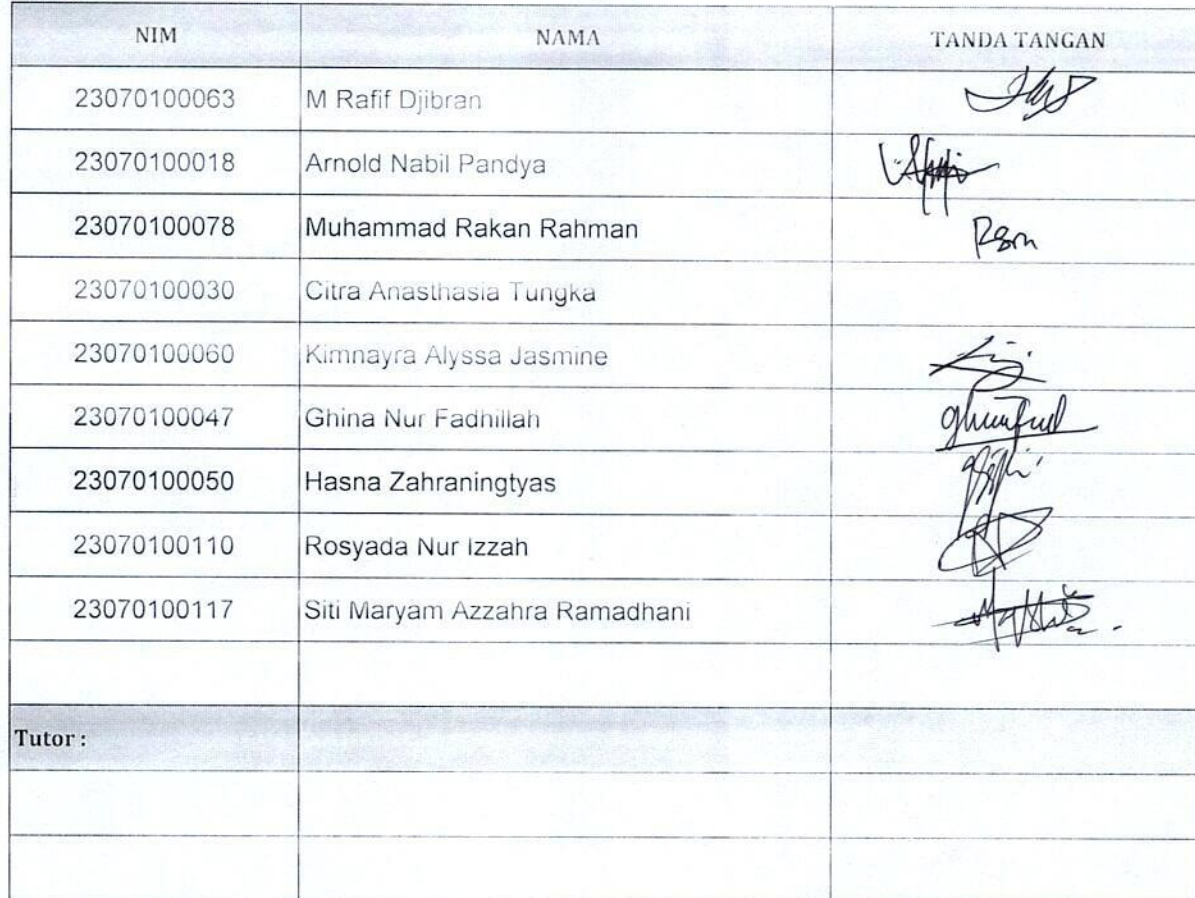 NIM NAMA TANDA TANGAN
23070100063 M Rafif Djibran
23070100018 Arnold Nabil Pandya
23070100078 Muhammad Rakan Rahman
23070100030 Citra Anasthasia Tungka
23070100060 Kimnayra Alyssa Jasmine
23070100047 Ghina Nur Fadhillah
23070100050 Hasna Zahraningtyas
23070100110 Rosyada Nur Izzah
23070100117 Siti Maryam Azzahra Ramadhani
Tutor :